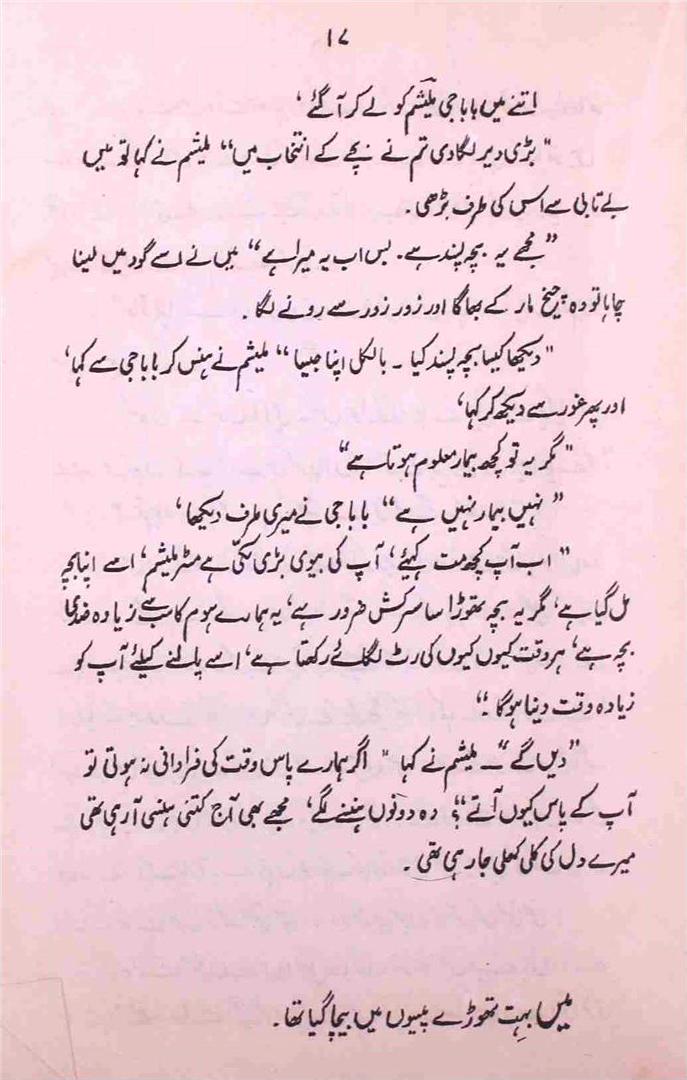 ۱۷
اتنے میں بابا جی ملیشم کو لے کر آگئے،
"بڑی دیر لگا دی تم نے بچے کے انتخاب میں" ملیشم نے کہا تو میں
بے تابی سے اس کی طرف بڑھی۔
"مجھے یہ بچہ پسند ہے۔ بس اب یہ میرا ہے" میں نے اسے گود میں لینا
چاہا تو وہ چیخ مار کے بھاگا اور زور زور سے رونے لگا۔
"دیکھا کیسا بچہ پسند کیا ۔ بالکل اپنا جیسا" ملیشم نے ہنس کر بابا جی سے کہا،
اور پھر غور سے دیکھ کر کہا،
"مگر یہ تو کچھ بیمار معلوم ہوتا ہے"
"نہیں بیمار نہیں ہے" بابا جی نے میری طرف دیکھا،
"اب آپ کچھ مت کہیئے، آپ کی بیوی بڑی لکی ہے مسٹر ملیشم، اسے اپنا بچہ
مل گیا ہے، مگر یہ بچہ تھوڑا سا سرکش ضرور ہے، یہ ہمارے ہوم کا سب سے زیادہ ضدی
بچہ ہے، ہر وقت کیوں کیوں کی رٹ لگائے رکھتا ہے، اسے پالنے کیلئے آپ کو
زیادہ وقت دینا ہوگا۔"
"دیں گے"۔ ملیشم نے کہا "اگر ہمارے پاس وقت کی فراوانی نہ ہوتی تو
آپ کے پاس کیوں آتے"؟ وہ دونوں ہنسنے لگے، مجھے بھی آج کتنی ہنسی آرہی تھی
میرے دل کی کلی کھلی جارہی تھی۔
میں بہت تھوڑے پیسوں میں بیچا گیا تھا۔